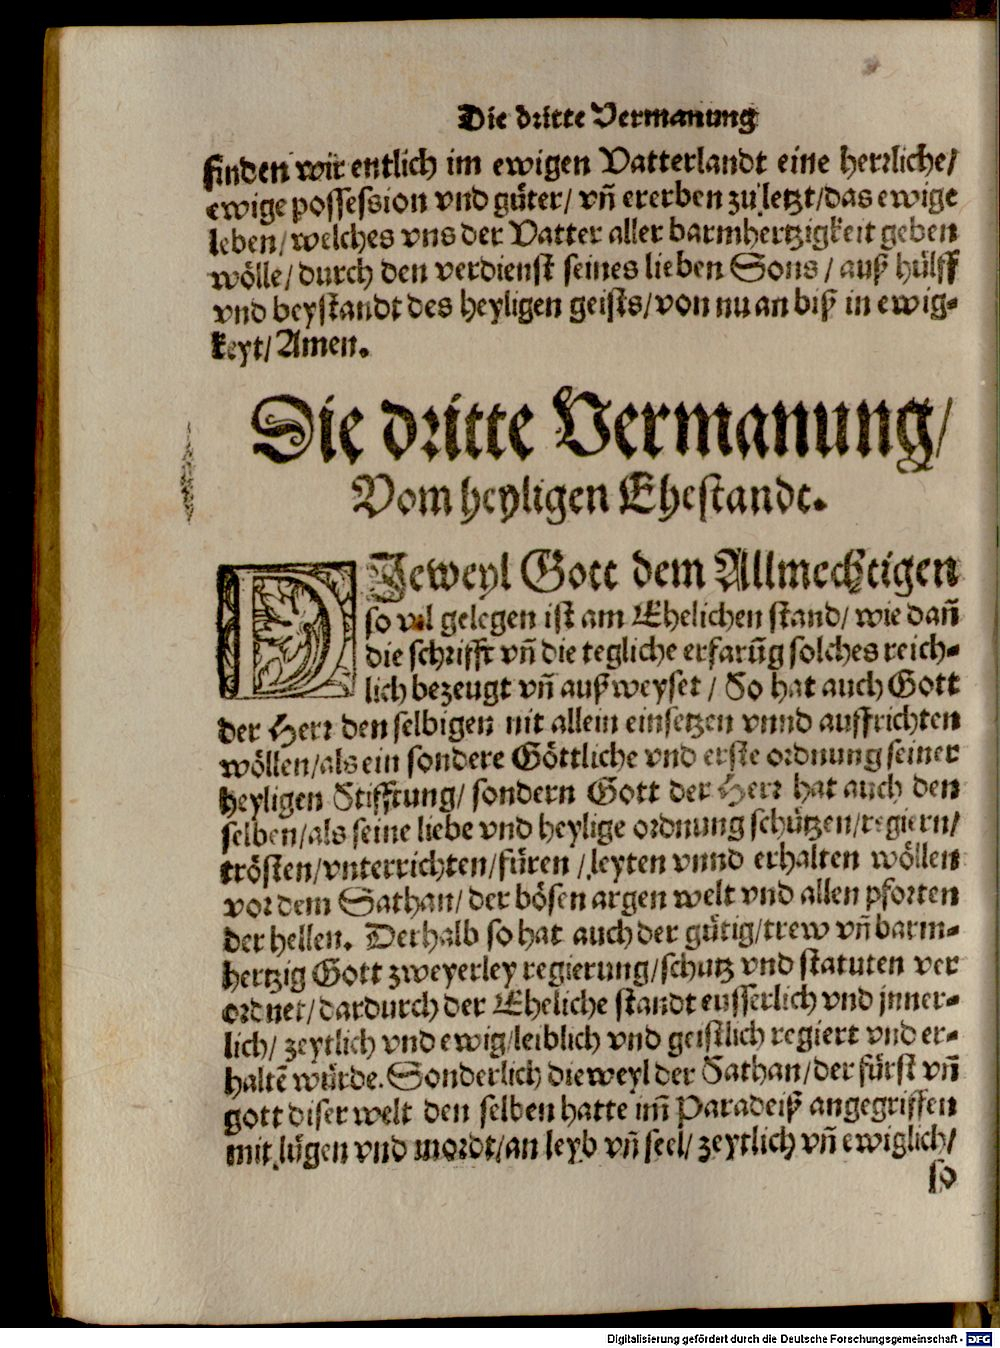 Die dritte Vermanung
finden wir entlich im ewigen Vatterlandt eine herrliche/
ewige possession vnd güter/ vñ ererben zu letzt/das ewige
leben/welches vns der Vatter aller barmhertzigkeit geben
wölle/durch den verdienst seines lieben Sons/ auß hülff
vnd beystandt des heyligen geists/von nu an biß in ewig-
keyt/Amen.
Die dritte Vermanung/
Vom heyligen Ehestandt.
DJeweyl Gott dem Allmechtigen
so vil gelegen ist am Ehelichen stand/ wie dañ
die schrifft vñ die tegliche erfarũg solches reich-
lich bezeugt vñ außweyset/ So hat auch Gott
der Herr den selbigen nit allein einsetzen vnnd auffrichten
wöllen/als ein sondere Göttliche vnd erste ordnung seiner
heyligen Stifftung/ sondern Gott der Herr hat auch den
selben/als seine liebe vnd heylige ordnung schützen/regiern/
trösten/vnterrichten/füren/leyten vnnd erhalten wöllen
vor dem Sathan/der bösen argen welt vnd allen pforten
der hellen. Derhalb so hat auch der gütig/trew vñ barm-
hertzig Gott zweyerley regierung/schutz vnd statuten ver
ordnet/dardurch der Eheliche standt eusserlich vnd jnner-
lich/ zeytlich vnd ewig/leiblich vnd geistlich regiert vnd er-
haltẽ würde. Sonderlich dieweyl der Sathan/der fürst vñ
gott diser welt den selben hatte im̃ Paradeiß angegriffen
mit lügen vnd mordt/an leyb vñ seel/ zeytlich vñ ewiglich/
so
Digitalisierung gefördert durch die Deutsche Forschungsgemeinschaft - DFG